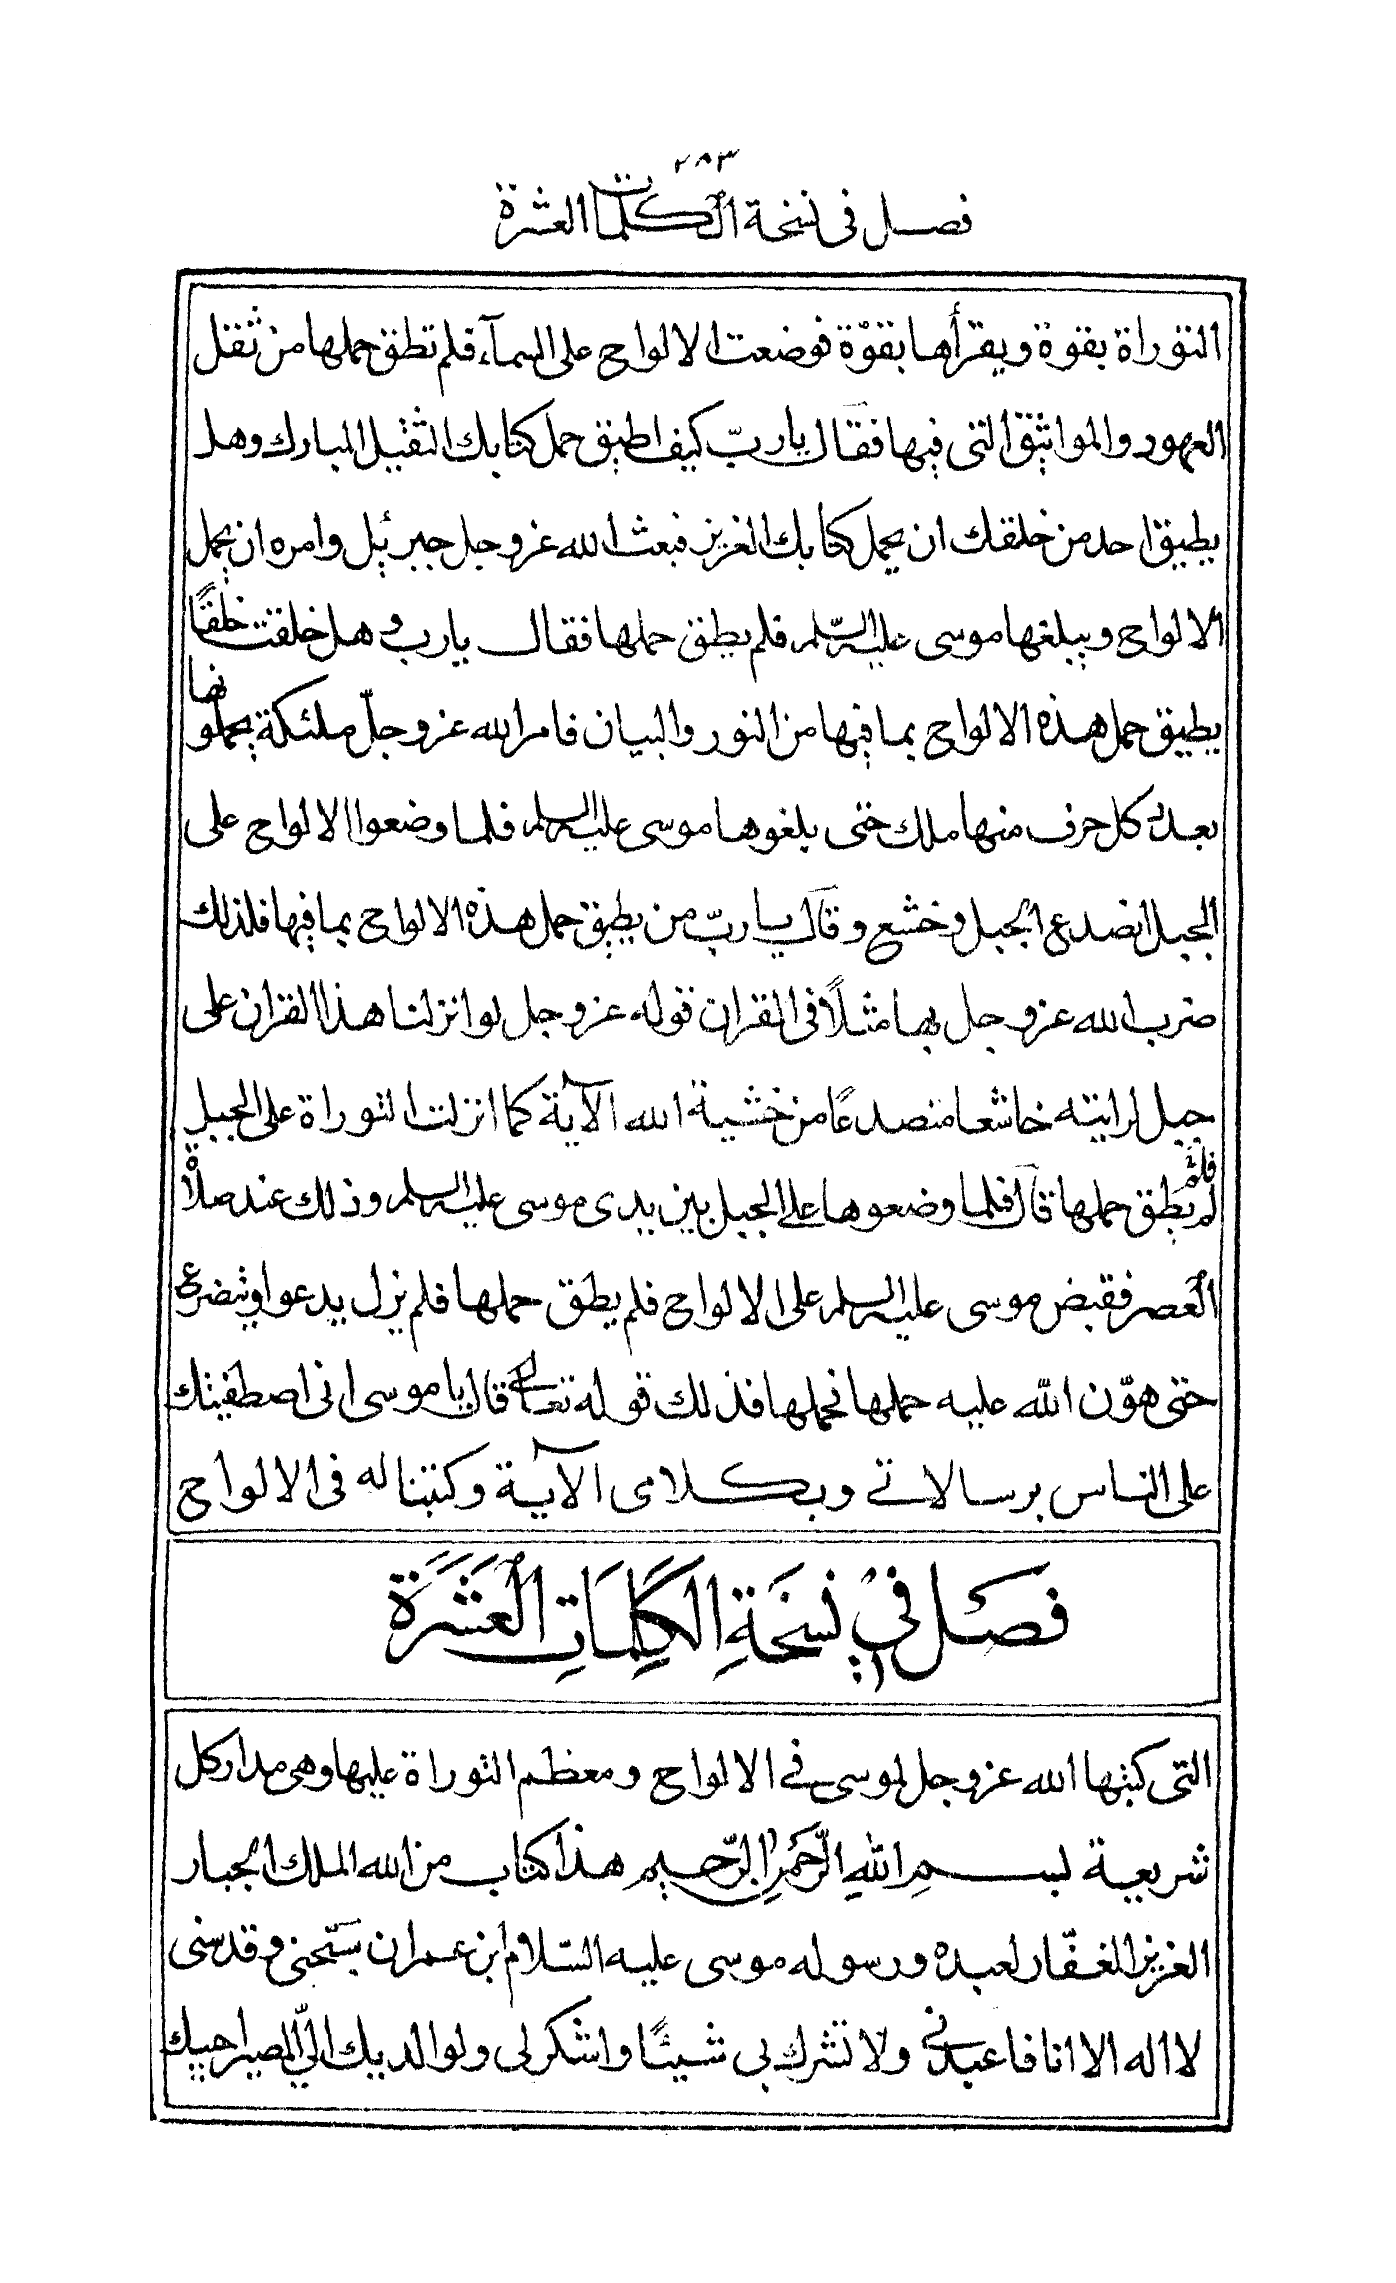 ٢٨٣
فصل في نسخة الكلمات العشرة
التوراة بقوة ويقرأها بقوّة فوضعت الالواح على السمآء فلم تطق حملها من ثقل
العهود والمواثيق التى فيها فقال يارب كيف اطيق حمل كتابك الثقيل المبارك وهل
يطيق احد من خلقك ان يحمل كتابك العزيز فبعث الله عز وجل جبرئيل وامره ان يحمل
الالواح ويبلغها موسى عليه السّلم فلم يطق حملها فقال يارب وهل خلقت خلقًا
يطيق حمل هذه الالواح بما فيها من النور والبيان فامر الله عز وجلّ ملئكة يحملونها
بعدد كل حرف منها ملك حتى بلغوها موسى عليه السلم فلما وضعوا الالواح على
الجبل انصدع الجبل وخشع وقال يارب من يطيق حمل هذه الالواح بما فيها فلذلك
ضرب الله عز وجل بها مثلاً فى القران قوله عز وجل لو انزلنا هذا القران على
جبل لرايته خاشعا متصدعًا من خشية الله الآية كما انزلت التوراة على الجبل
فلم يطق حملها قال فلما وضعوها على الجبل بين يدى موسى عليه السلم وذلك عند صلاة
العصر فقبض موسى عليه السلم على الالواح فلم يطق حملها فلم يزل يدعوا ويتضرع
حتى هوّن الله عليه حملها فحملها فذلك قوله تعالى قال يا موسى انى اصطفيتك
على الناس برسالاتى وبكلامى الآية وكتبنا له فى الالواح
فصل في نسخة الكلمات العشرة
التى كتبها الله عز وجل لموسى فى الالواح ومعظم التوراة عليها وهى مدار كل
شريعة بسم الله الرّحمن الرّحيم هذا كتاب من الله الملك الجبار
العزيز الغفّار لعبده ورسوله موسى عليه السّلام ابن عمران سبّحنى وقدسنى
لا اله الا انا فاعبدنى ولا تشرك بى شيئًا واشكر لى ولوالديك الىّ المصير احييك